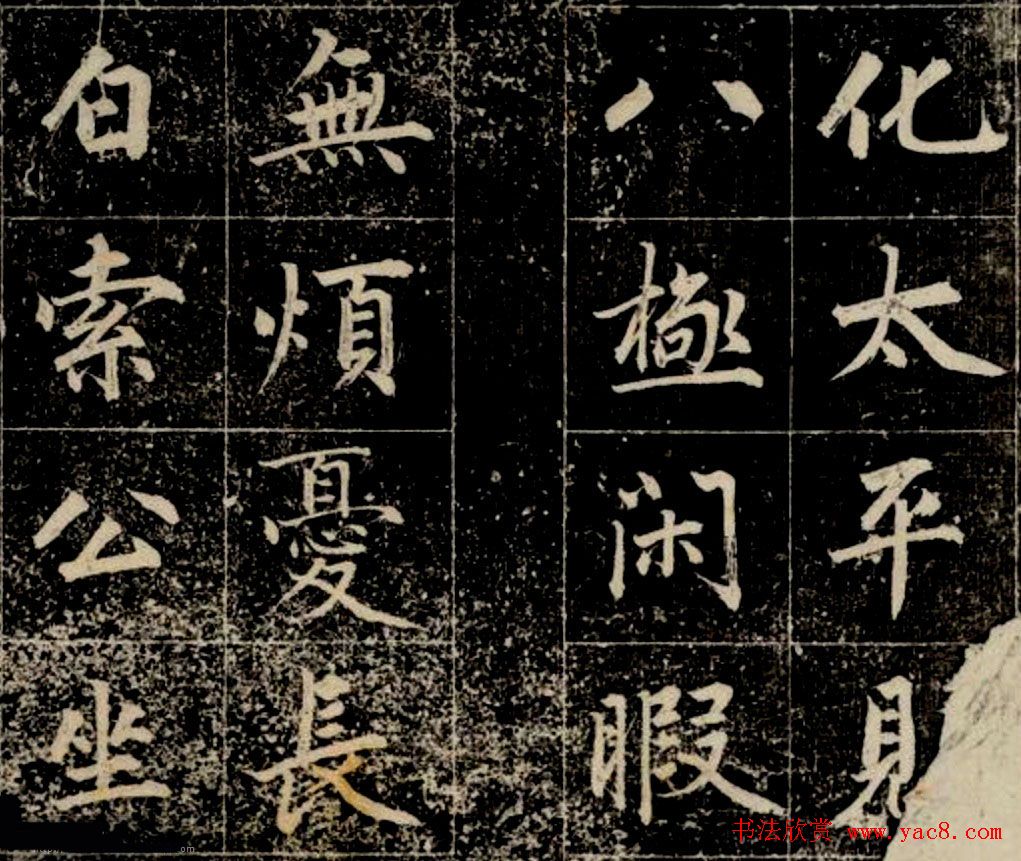 化太平見
八極閑暇
無煩憂長
白索公坐
书法欣赏 www.yac8.com